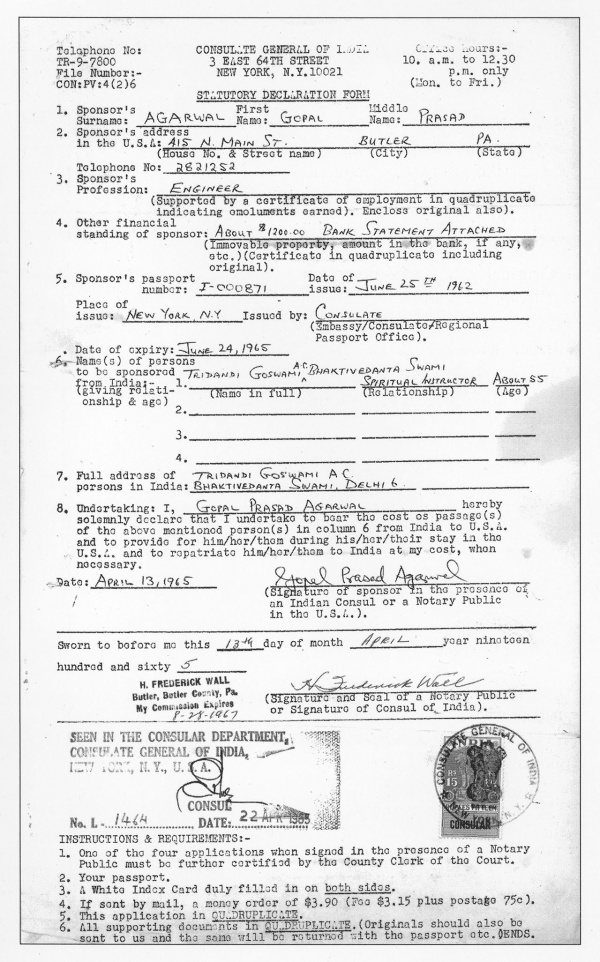 Telephone No: CONSULATE GENERAL OF INDIA Office Hours:-
TR-9-7800 3 EAST 64TH STREET 10. a.m. to 12.30
File Number:- NEW YORK, N.Y.10021 p.m. only
CON:PV:4(2)6 (Mon. to Fri.)
STATUTORY DECLARATION FORM
1. Sponsor's First Middle
Surname: AGARWAL Name: GOPAL Name: PRASAD
2. Sponsor's address
in the U.S.A: 415 N. MAIN ST. BUTLER PA.
(House No. & Street name) (City) (State)
Telephone No: 2821252
3. Sponsor's
Profession: ENGINEER
(Supported by a certificate of employment in quadruplicate
indicating emoluments earned). Enclose original also).
4. Other financial
standing of sponsor: ABOUT $1200.00 BANK STATEMENT ATTACHED
(Immovable property, amount in the bank, if any,
etc.)(Certificate in quadruplicate including
original).
5. Sponsor's passport Date of
number: I-000871 issue: JUNE 25TH 1962
Place of
issue: NEW YORK, N.Y Issued by: CONSULATE
(Embassy/Consulate/Regional
Passport Office).
. Date of expiry: JUNE 24, 1965
6. Name(s) of persons
to be sponsored TRIDANDI GOSWAMI A.C. BHAKTIVEDANTA SWAMI
from India:- 1. SPIRITUAL INSTRUCTOR ABOUT 55
(giving relati- (Name in full) (Relationship) (Age)
onship & age) 2.
3.
4.
7. Full address of TRIDANDI GOSWAMI A.C.
persons in India: BHAKTIVEDANTA SWAMI, DELHI 6.
8. Undertaking: I, GOPAL PRASAD AGARWAL hereby
solemnly declare that I undertake to bear the cost os passage(s)
of the above mentioned person(s) in column 6 from India to U.S.A.
and to provide for him/her/them during his/her/their stay in the
U.S.A. and to repatriate him/her/them to India at my cost, when
necessary.
Date: APRIL 13, 1965 Gopal Prasad Agarwal
(Signature of sponsor in the presence of
an Indian Consul or a Notary Public
in the U.S.A.).
Sworn to before me this 13th day of month APRIL year nineteen
hundred and sixty 5
H. FREDERICK WALL H Frederick Wall
Butler, Butler County, Pa. (Signature and Seal of a Notary Public
My Commission Expires or Signature of Consul of India).
8-28-1967
SEEN IN THE CONSULAR DEPARTMENT,
CONSULATE GENERAL OF INDIA,
NEW YORK, N. Y., U. S. A.
CONSUL
No. I.- 1464 DATE: 22 APR 1965
CONSULATE GENERAL OF INDIA
RS 15
CONSULAR
INSTRUCTIONS & REQUIREMENTS:-
1. One of the four applications when signed in the presence of a Notary
Public must be further certified by the County Clerk of the Court.
2. Your passport.
3. A White Index Card duly filled in on both sides.
4. If sent by mail, a money order of $3.90 (Fee $3.15 plus postage 75c).
5. This application in QUADRUPLICATE.
6. All supporting documents in QUADRUPLICATE.(Originals should also be
sent to us and the same will be returned with the passport etc.)ENDS.